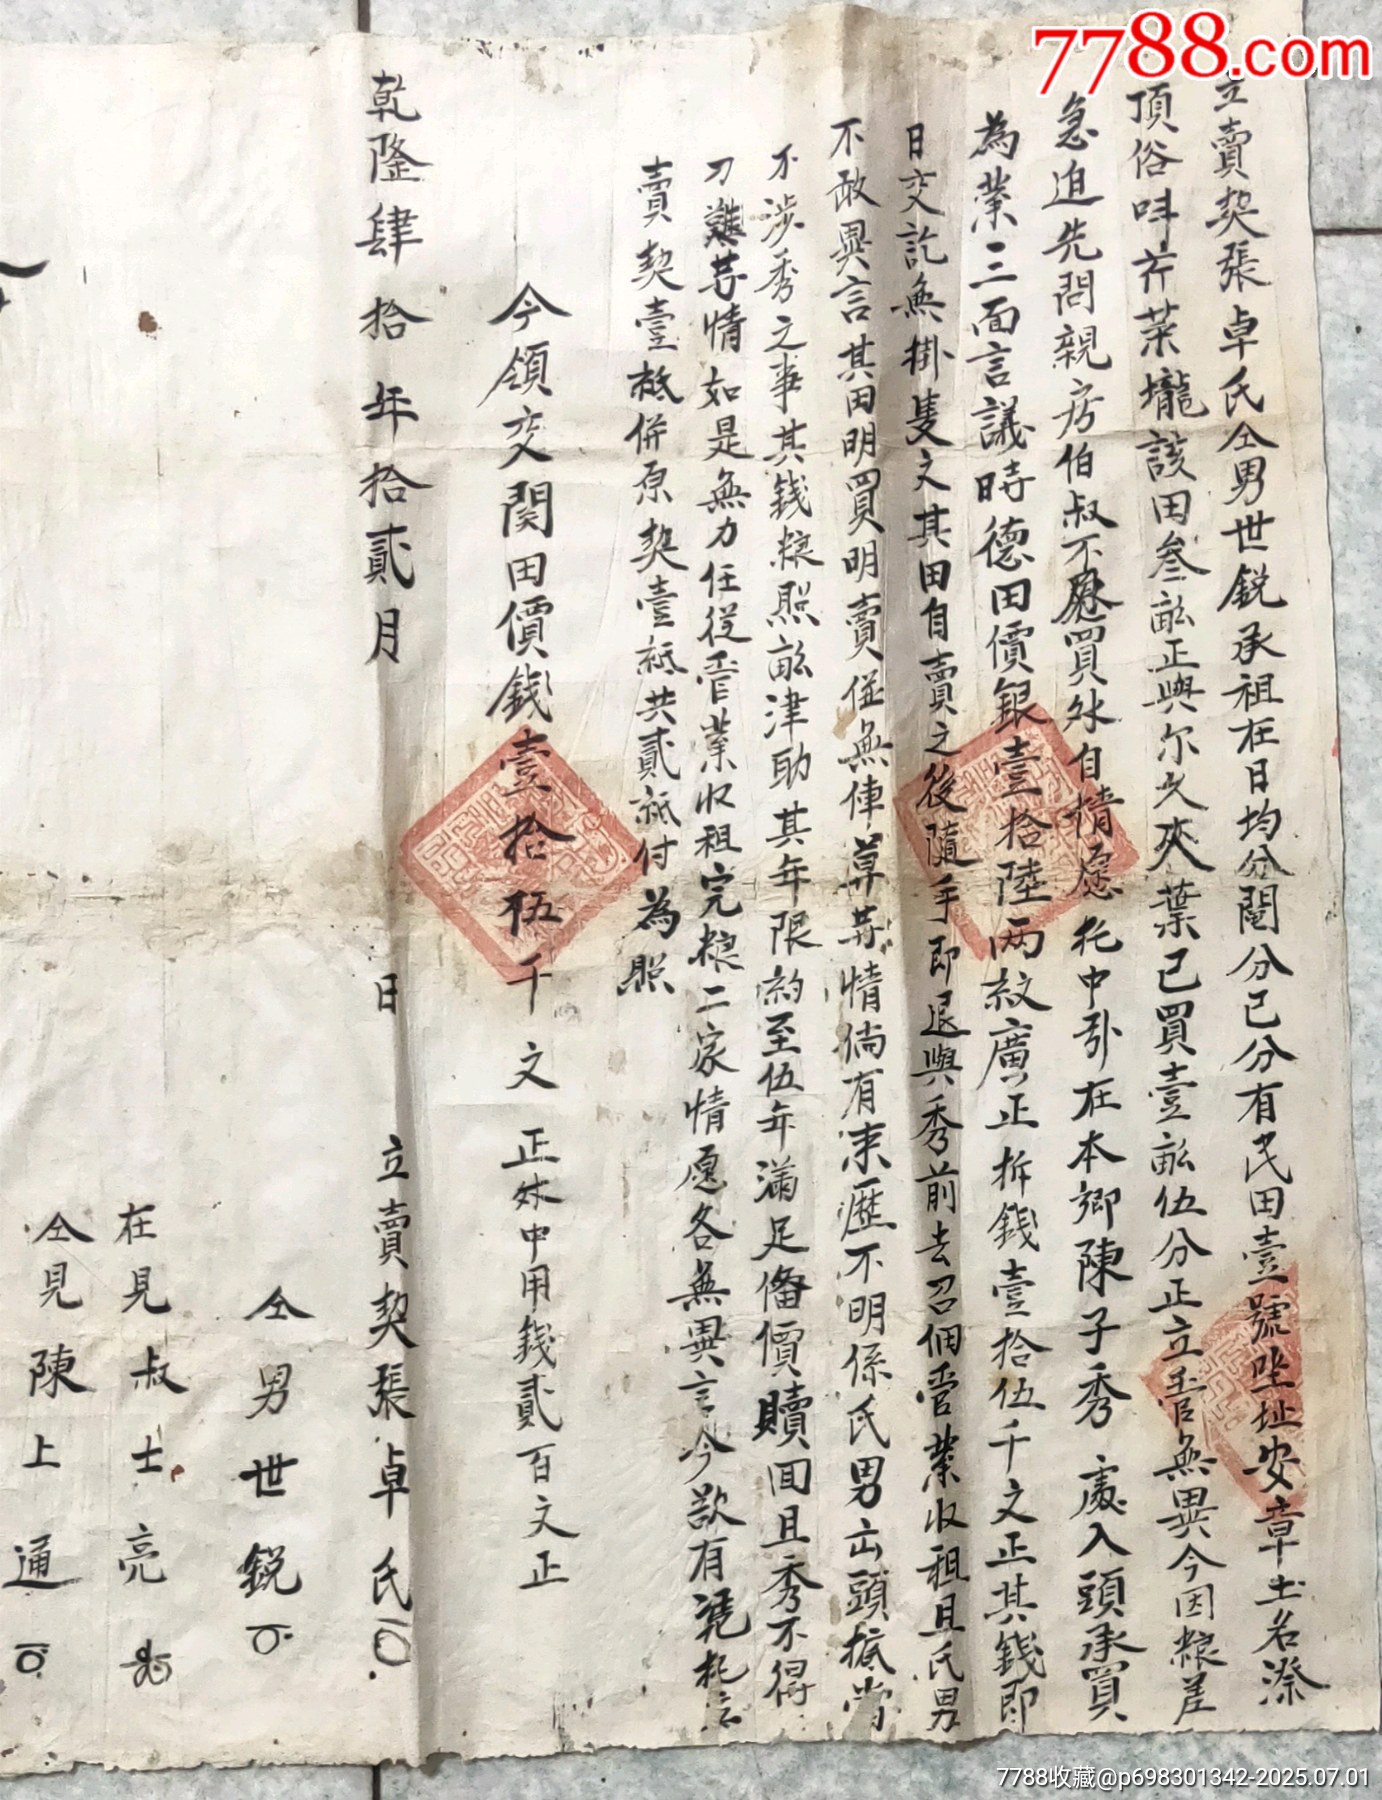 7788.com
立賣契張卓氏仝男世銳承祖在日均分閹分已分有民田壹號坐址安章土名漈
頂俗呌芹菜壠該田叁畝正與尔夾葉已買壹畝伍分正立管無異今因粮差
急迫先問親房伯叔不愿買外自情愿托中引在本鄉陳子秀處入頭承買
為業三面言議時德田價銀壹拾陸両紋廣正折錢壹拾伍千文正其錢即
日交訖無掛隻文其田自賣之後隨手即退與秀前去召佃管業收租且氏男
不敢異言其田明買明賣並無俥算等情倘有来歷不明係氏男出頭抵當
不涉秀之事其錢粮照畝津助其年限約至伍年滿足俻價贖囬且秀不得
刀難等情如是無力任從管業收租完粮二家情愿各無異言今欲有憑托立
賣契壹紙併原契壹紙共貳紙付為照
今領交関田價錢壹拾伍千文正外中用錢貳百文正
乾隆肆拾年拾貳月 日立賣契張卓氏
仝男世銳
在見叔士亮
仝見陳上通
7788收藏@p698301342-2025.07.01